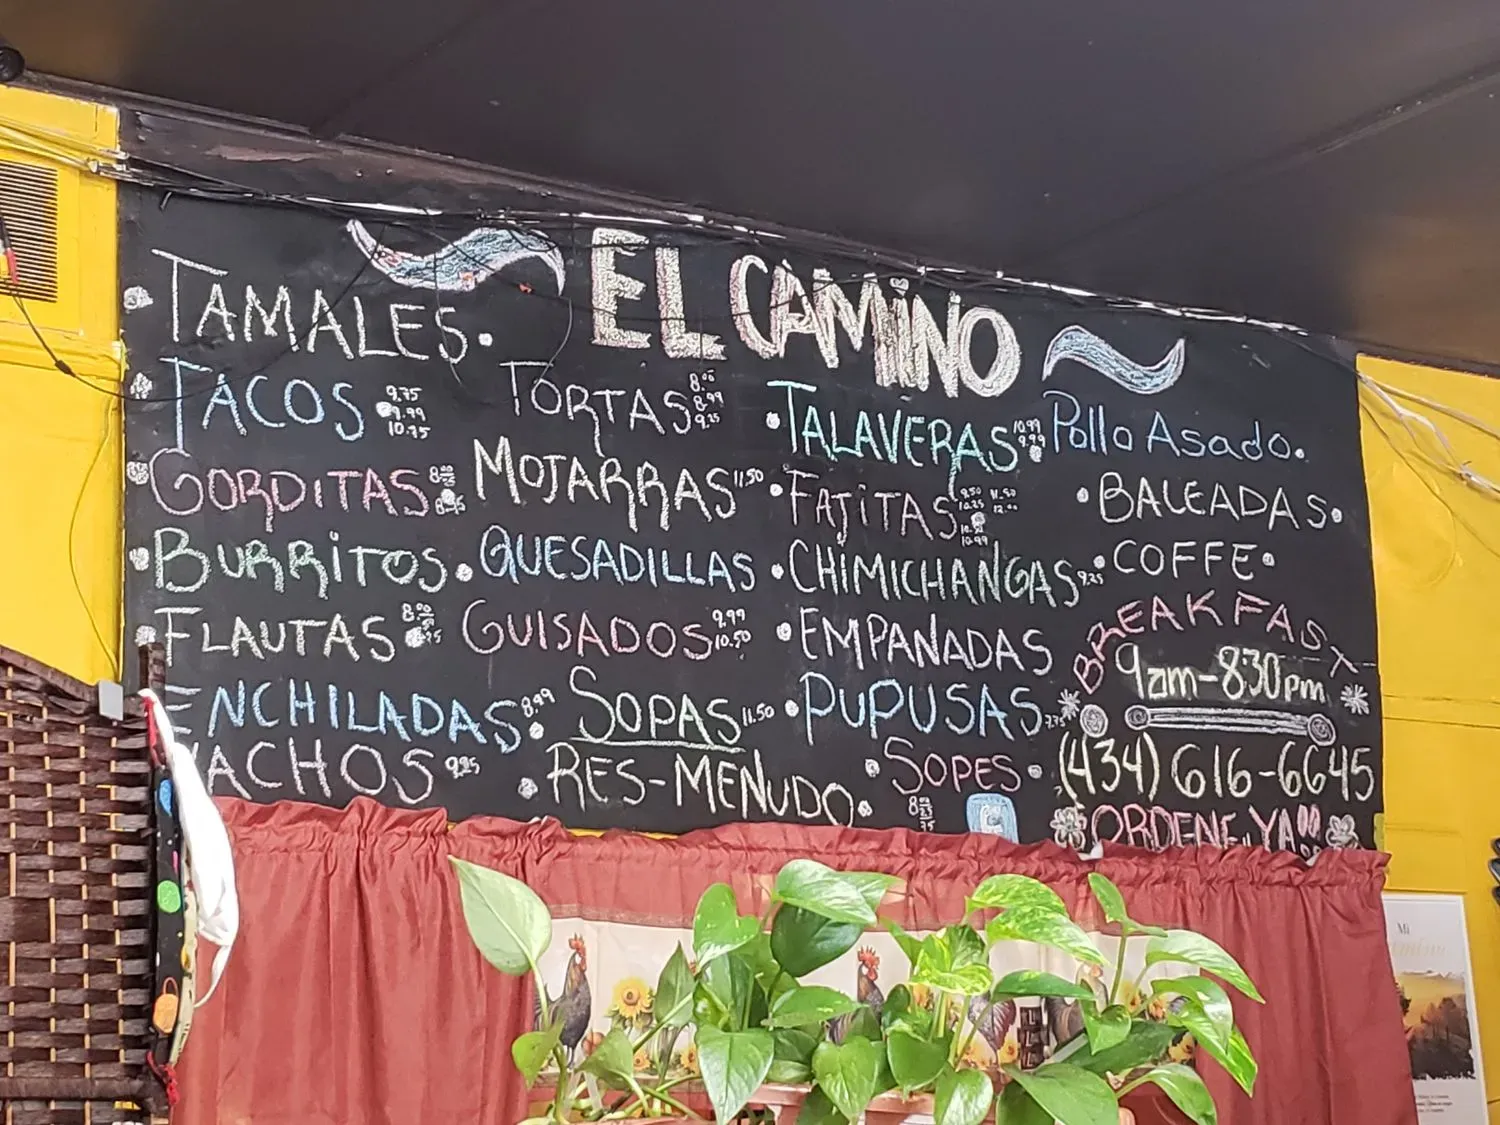 EL CAMINO
TAMALES
TACOS 9.75
9.99
10.75
GORDITAS
BURRITOS
FLAUTAS
ENCHILADAS 8.99
NACHOS 9.25
TORTAS 8.00
8.99
9.25
MOJARRAS 11.50
QUESADILLAS
GUISADOS 9.99
10.50
SOPAS 11.50
RES-MENUDO
TALAVERAS 10.99
9.99
FAJITAS 9.50 11.50
10.25 12.00
10.99
CHIMICHANGAS 9.25
EMPAÑADAS
PUPUSAS
SOPES
Pollo Asado
BALEADAS
COFFE
BREAKFAST
9am-8:30pm
(434) 616-6645
ORDENE YA!!
Mi